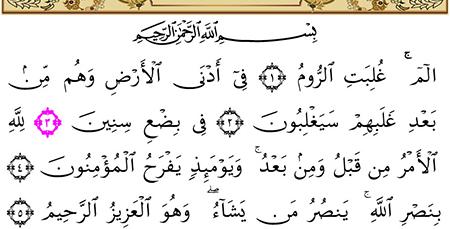 بِسْمِ اللَّهِ الرَّحْمَٰنِ الرَّحِيمِ
الٓمٓ ۚ غُلِبَتِ الرُّومُ ﴿١﴾ فِىٓ أَدْنَى الْأَرْضِ وَهُم مِّنۢ
بَعْدِ غَلَبِهِمْ سَيَغْلِبُونَ ﴿٢﴾ فِى بِضْعِ سِنِينَ ﴿٣﴾ لِلَّهِ
الْأَمْرُ مِن قَبْلُ وَمِنۢ بَعْدُ ۚ وَيَوْمَئِذٍ يَفْرَحُ الْمُؤْمِنُونَ ﴿٤﴾
بِنَصْرِ اللَّهِ ۚ يَنصُرُ مَن يَشَآءُ ۖ وَهُوَ الْعَزِيزُ الرَّحِيمُ ﴿٥﴾